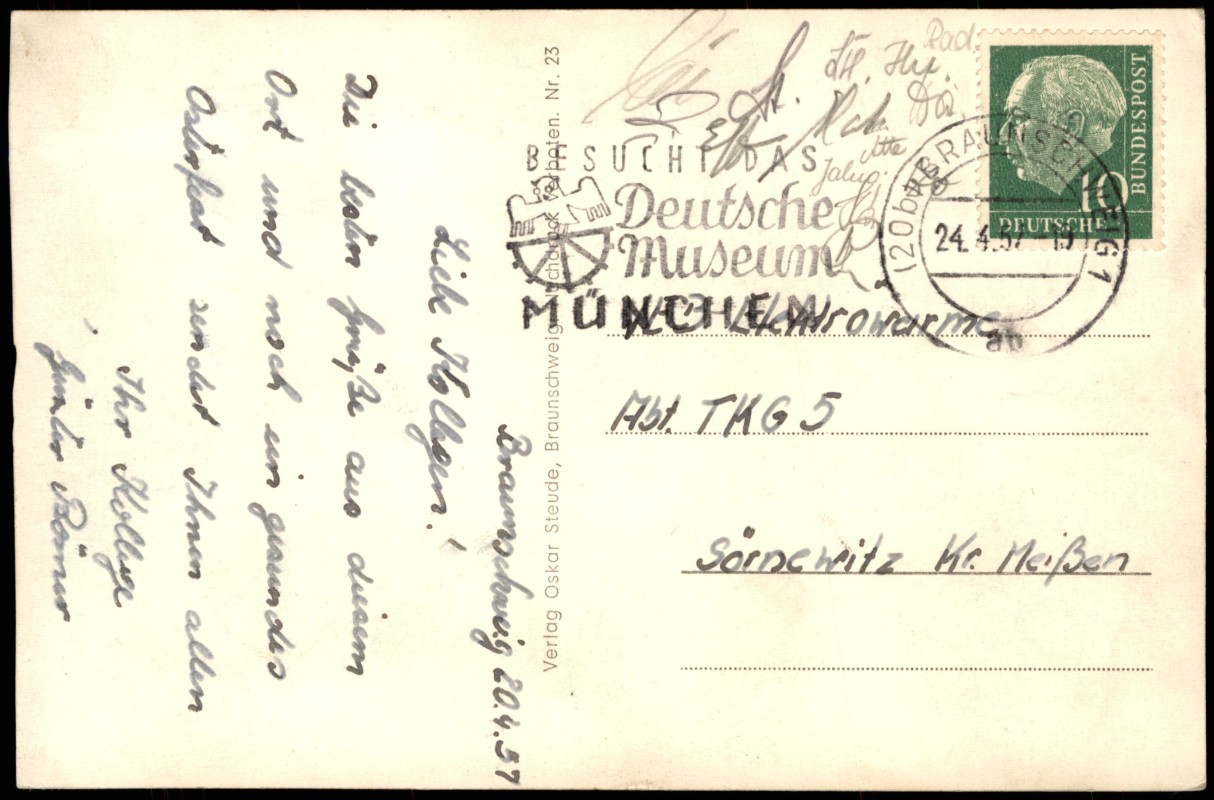 Braunschweig 20.4.57
Liebe Kollegen!
Die besten Grüße aus diesem
Ort und noch ein gesundes
Osterfest sendet Ihnen allen
Ihr Kollege
Günter
Verlag Oskar Steude, Braunschweig verboten. Nr. 23
BESUCHT DAS
Deutsche
Museum
MÜNCHEN
(20b) BRAUNSCHWEIG 1
24.4.57
ab
10
DEUTSCHE
BUNDESPOST
Rad.
Elektrowärme
Abt. TKG 5
Sörnewitz Kr. Meißen